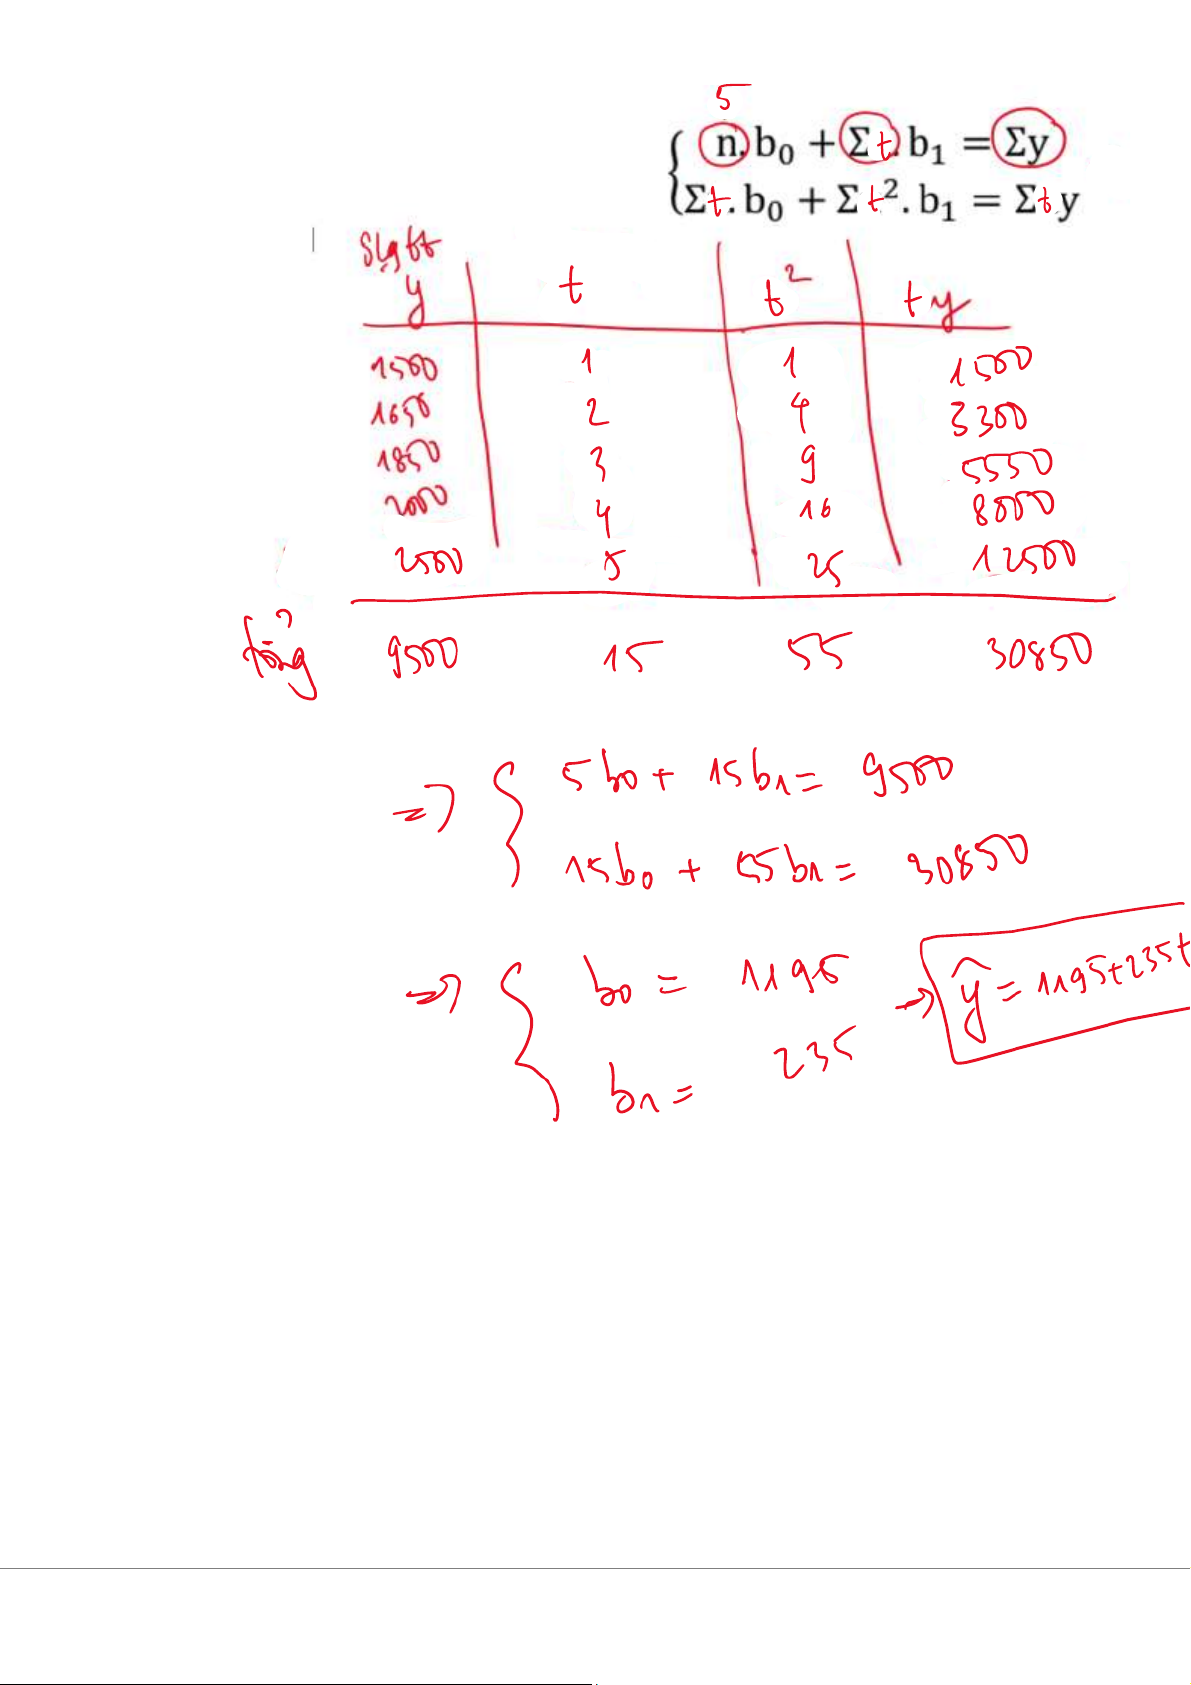 5
n. b₀ + Σt. b₁ = Σy
Σt. b₀ + Σt². b₁ = Σt.y
slg tt
y t t² ty
1500 1 1 1500
1650 2 4 3300
1850 3 9 5550
2000 4 16 8000
2500 5 25 12500
tổng 9500 15 55 30850
=> 5b0 + 15b1 = 9500
15b0 + 55b1 = 30850
=> b0 = 1195 → ŷ = 1195+235t
b1 = 235